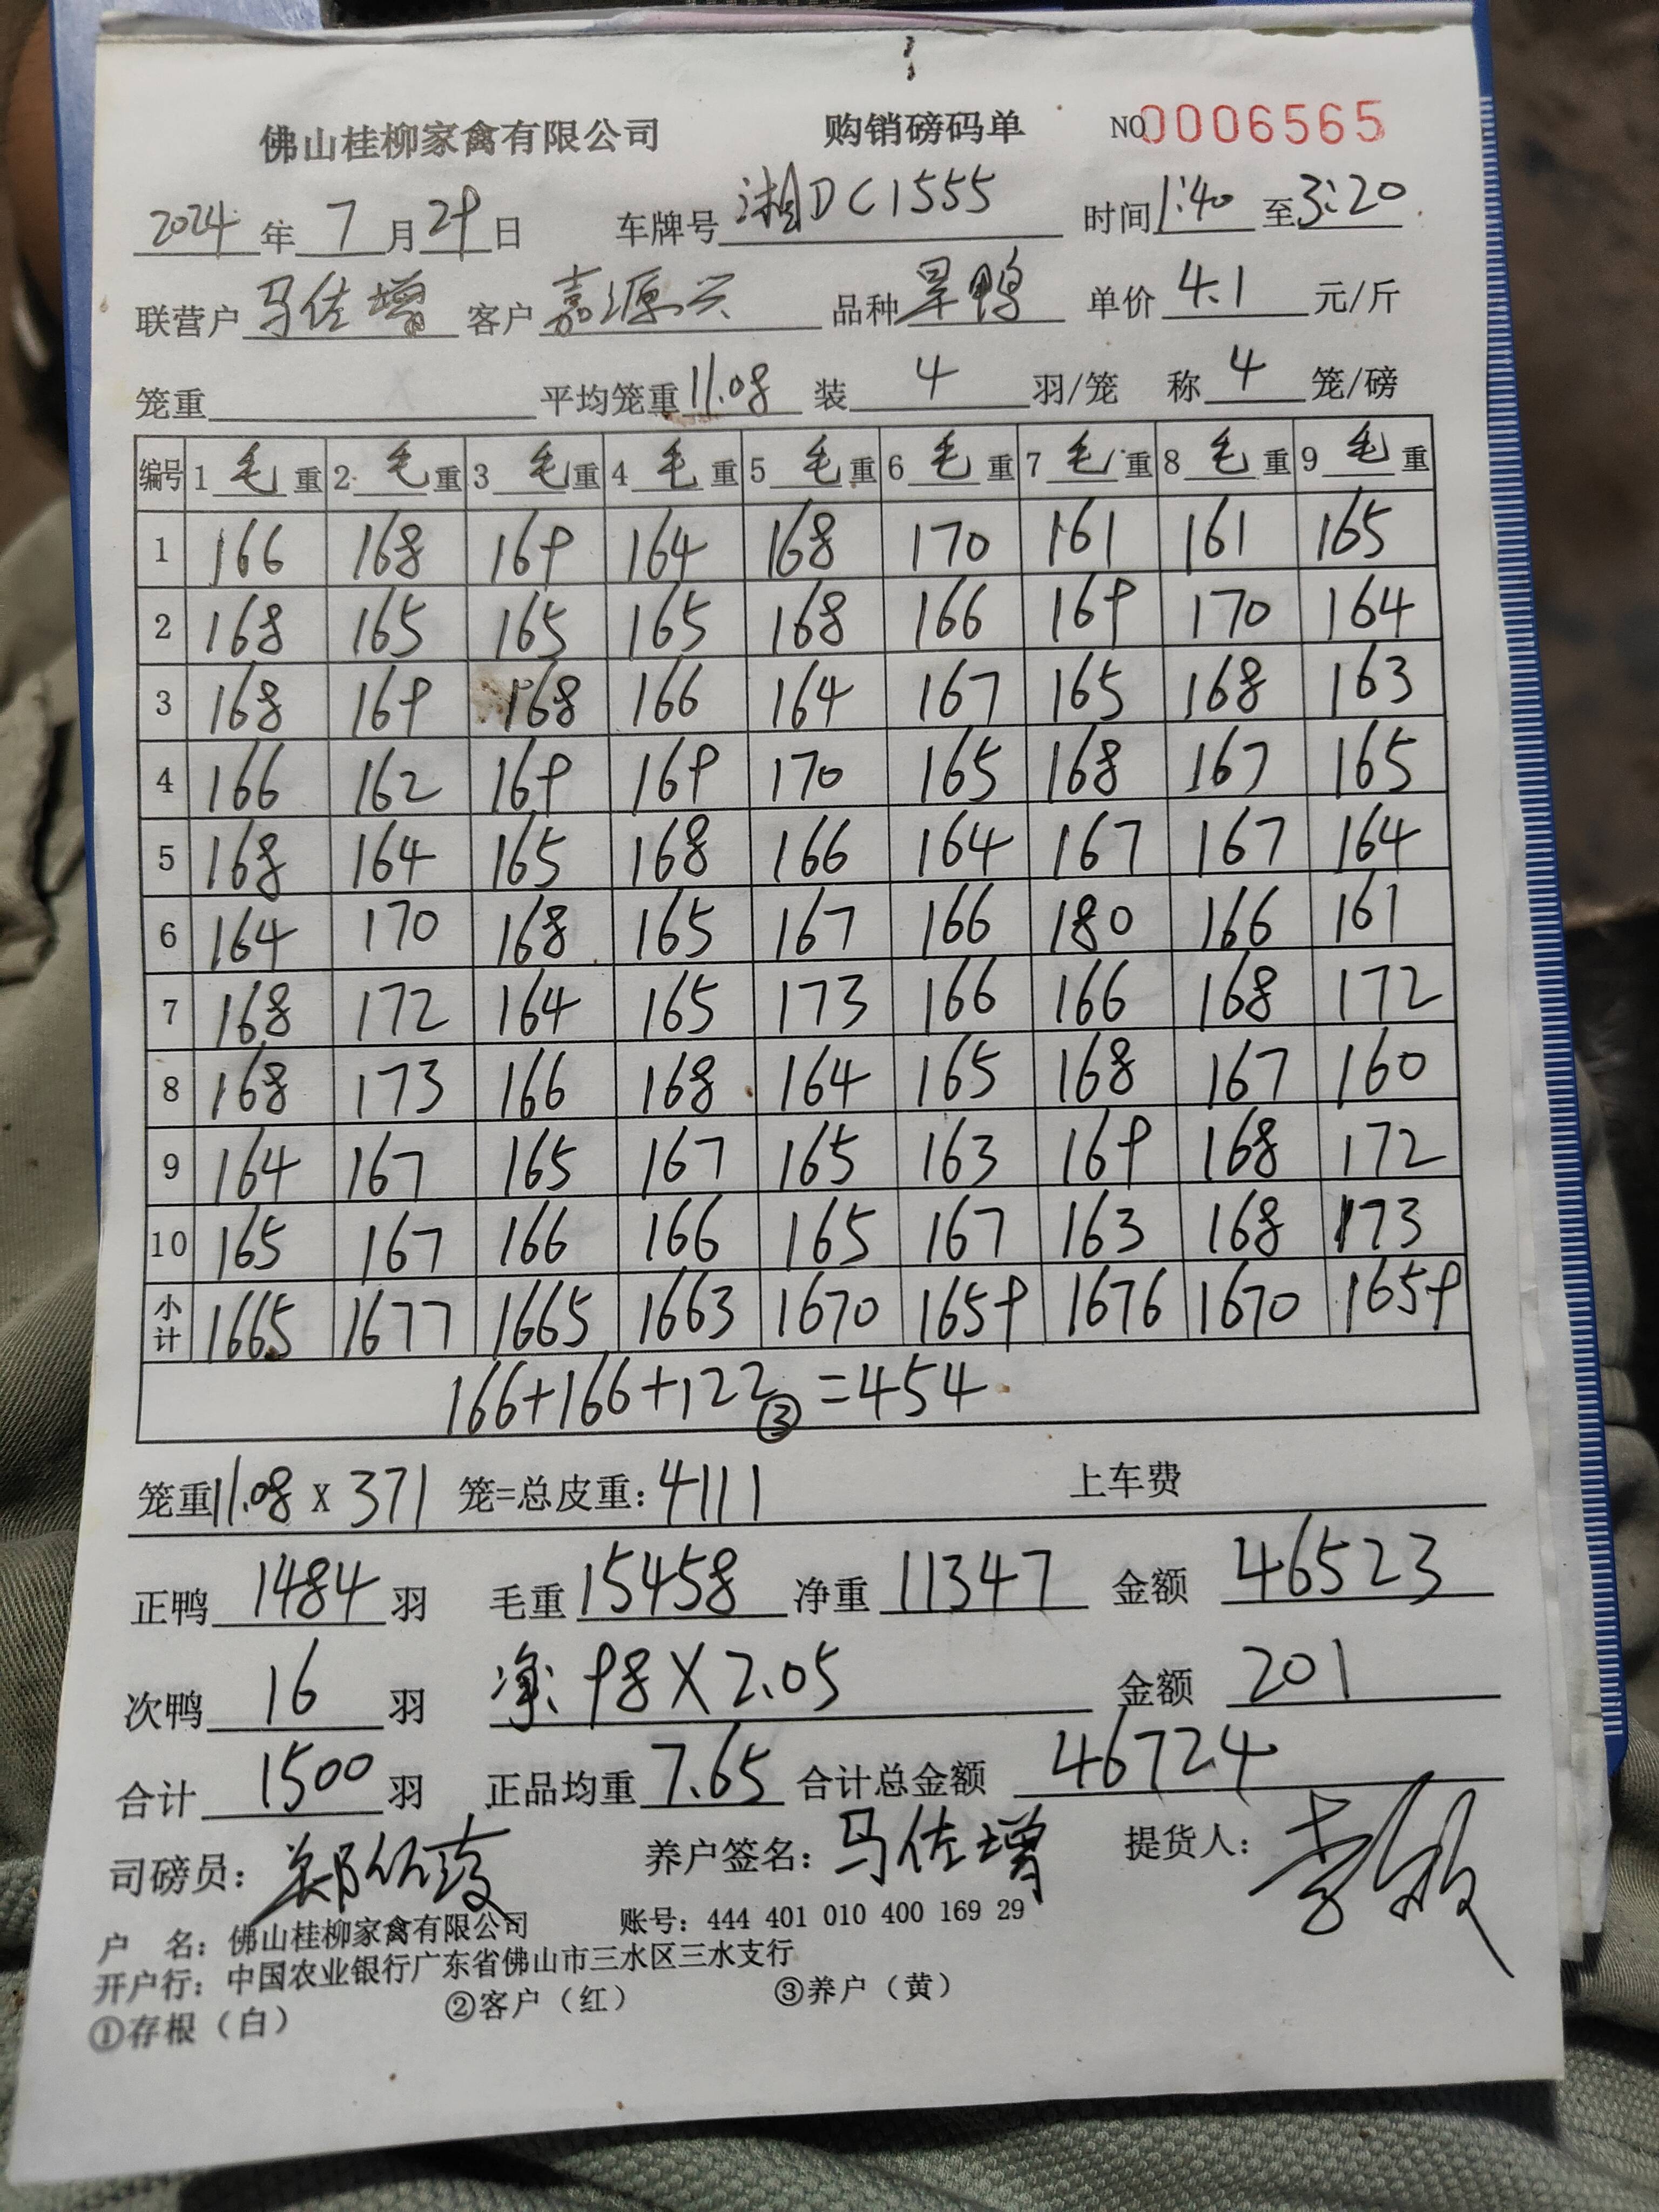 佛山桂柳家禽有限公司 购销磅码单 NO 0006565
2024 年 7 月 29 日 车牌号 湘DC1555 时间 1:40 至 3:20
联营户 马佐增 客户 嘉源兴 品种 旱鸭 单价 4.1 元/斤
笼重 平均笼重 11.08 装 4 羽/笼 称 4 笼/磅
编号 1 毛 重 2 毛 重 3 毛 重 4 毛 重 5 毛 重 6 毛 重 7 毛 重 8 毛 重 9 毛 重
1 166 168 169 164 168 170 161 161 165
2 168 165 165 165 168 166 169 170 164
3 168 169 168 166 164 167 165 168 163
4 166 162 169 169 170 165 168 167 165
5 168 164 165 168 166 164 167 167 164
6 164 170 168 165 167 166 180 166 161
7 168 172 164 165 173 166 166 168 172
8 168 173 166 168 164 165 168 167 160
9 164 167 165 167 165 163 169 168 172
10 165 167 166 166 165 167 163 168 173
小计 1665 1677 1665 1663 1670 1659 1676 1670 1659
166+166+122③=454
笼重 11.08 x 371 笼=总皮重: 4111 上车费
正鸭 1484 羽 毛重 15458 净重 11347 金额 46523
次鸭 16 羽 净: 98X2.05 金额 201
合计 1500 羽 正品均重 7.65 合计总金额 46724
司磅员: 养户签名: 马佐增 提货人:
户 名: 佛山桂柳家禽有限公司 账号: 444 401 010 400 169 29
开户行: 中国农业银行广东省佛山市三水区三水支行
①存根（白） ②客户（红） ③养户（黄）